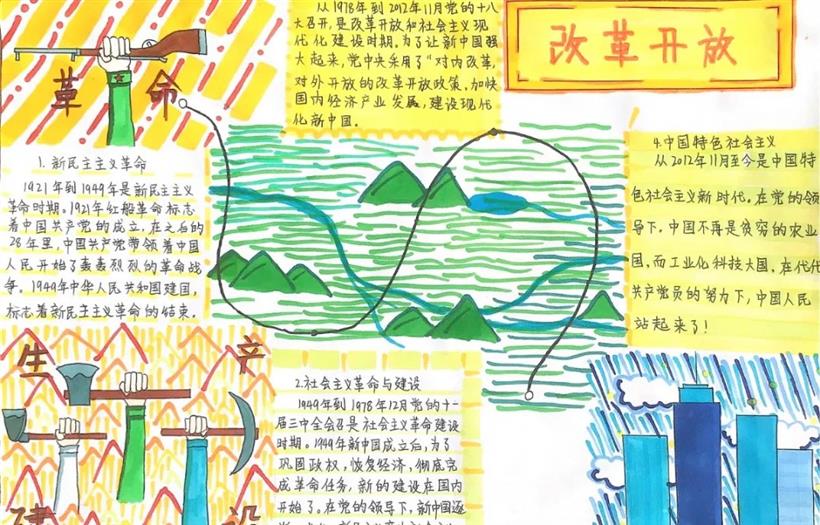 从1978年到2012年11月党的十八
大召开,是改革开放和社会主义现
代化建设时期。为了让新中国强
大起来,党中央采用了“对内改革,
对外开放的改革开放政策,加快
国内经济产业发展,建设现代
化新中国.
改革开放
革命
1.新民主主义革命
1921年到1949年是新民主主义
革命时期。1921年红船革命标志
着中国共产党的成立,在之后的
28年里,中国共产党带领着中国
人民开始了轰轰烈烈的革命战
争。1949年中华人民共和国建国,
标志着新民主主义革命的结束.
4.中国特色社会主义
从2012年11月至今是中国特
色社会主义新时代。在党的领
导下,中国不再是贫穷的农业
国,而工业化科技大国,在代代
共产党员的努力下,中国人民
站起来了!
生产
建设
2.社会主义革命与建设
1949年到1978年12月党的十一
届三中全会召是社会主义革命建设
时期。1949年新中国成立后,为了
巩固政权,恢复经济,彻底完
成革命任务,新的建设在国内
开始了。在党的领导下,新中国逐